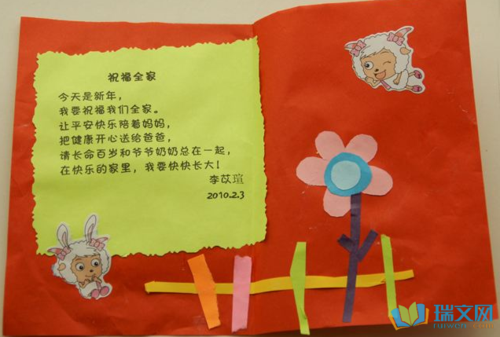 祝福全家
今天是新年，
我要祝福我们全家。
让平安快乐陪着妈妈，
把健康开心送给爸爸，
请长命百岁和爷爷奶奶总在一起，
在快乐的家里，我要快快长大！
李苡瑄
2010.2.3
瑞文网